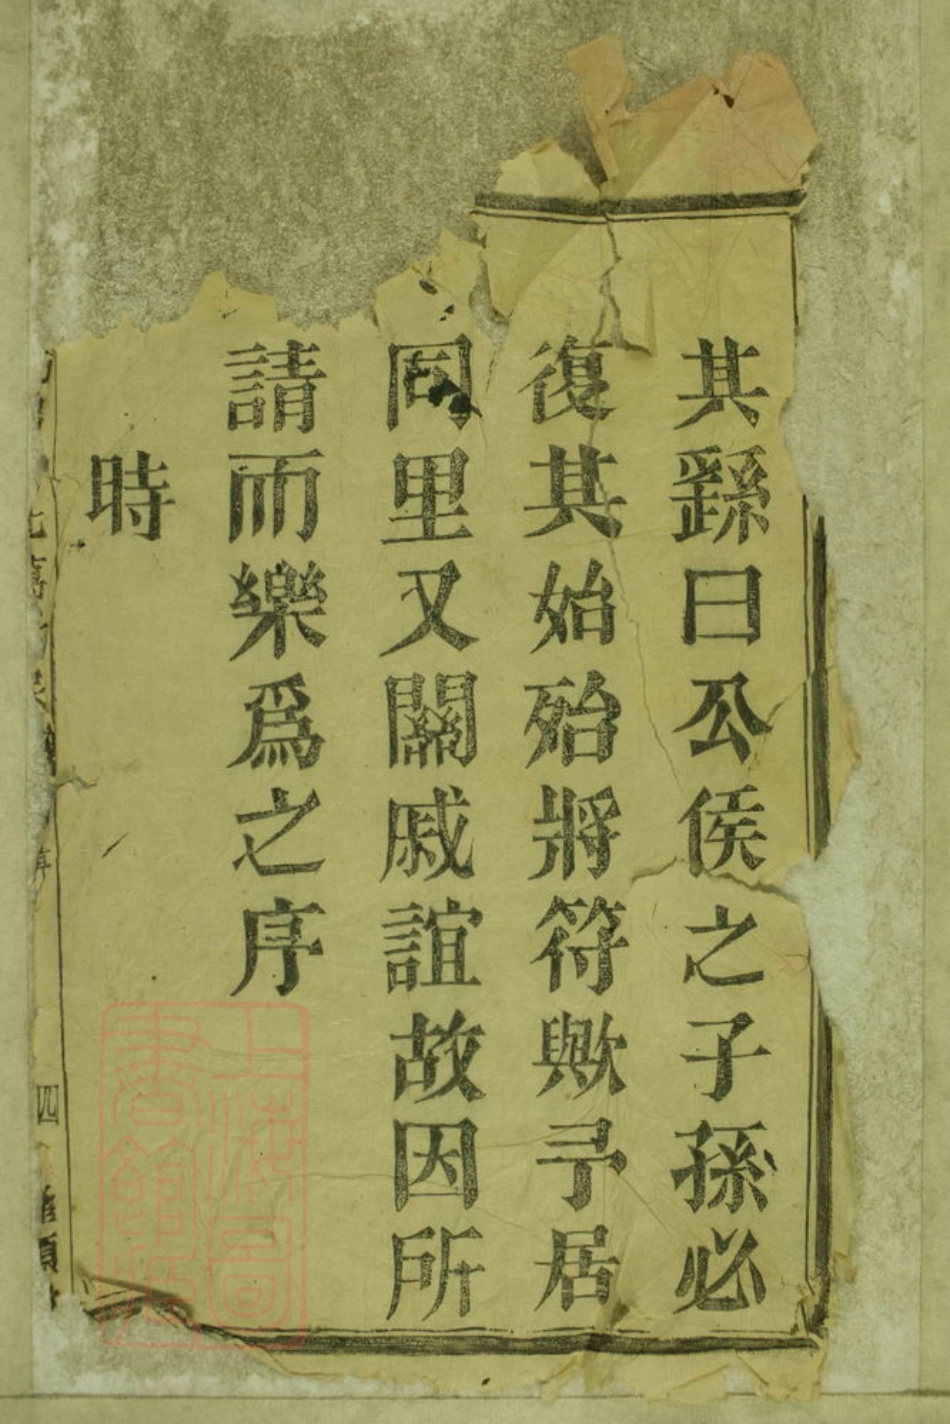 其繇曰公侯之子孫必
復其始殆將符歟予居
同里又關戚誼故因所
請而樂爲之序
時
四
上海圖書館藏